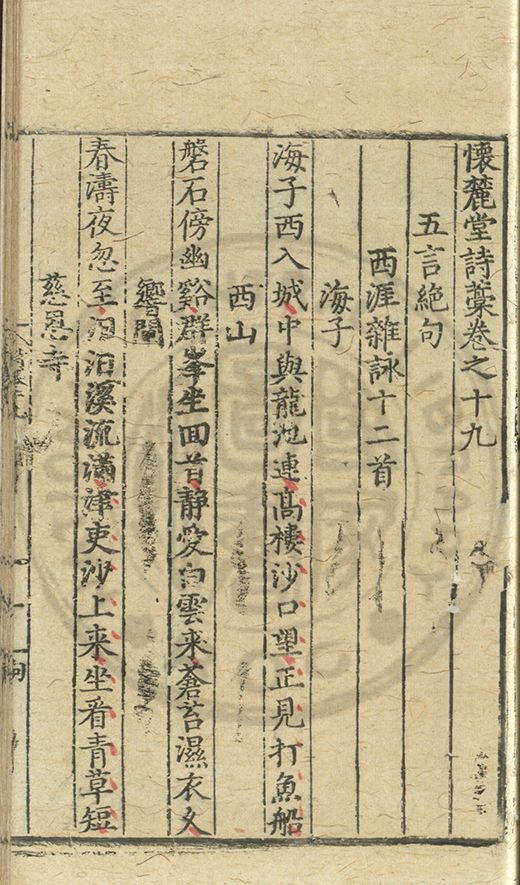 懷麓堂詩藁卷之十九
五言絕句
西涯雜詠十二首
海子
海子西入城中與龍池連高樓沙口望正見打魚船
西山
磐石傍幽谿群峯坐回首靜愛白雲来蒼苔濕衣久
響閘
春濤夜忽至汨汨溪流滿津吏沙上来坐看青草短
慈恩寺